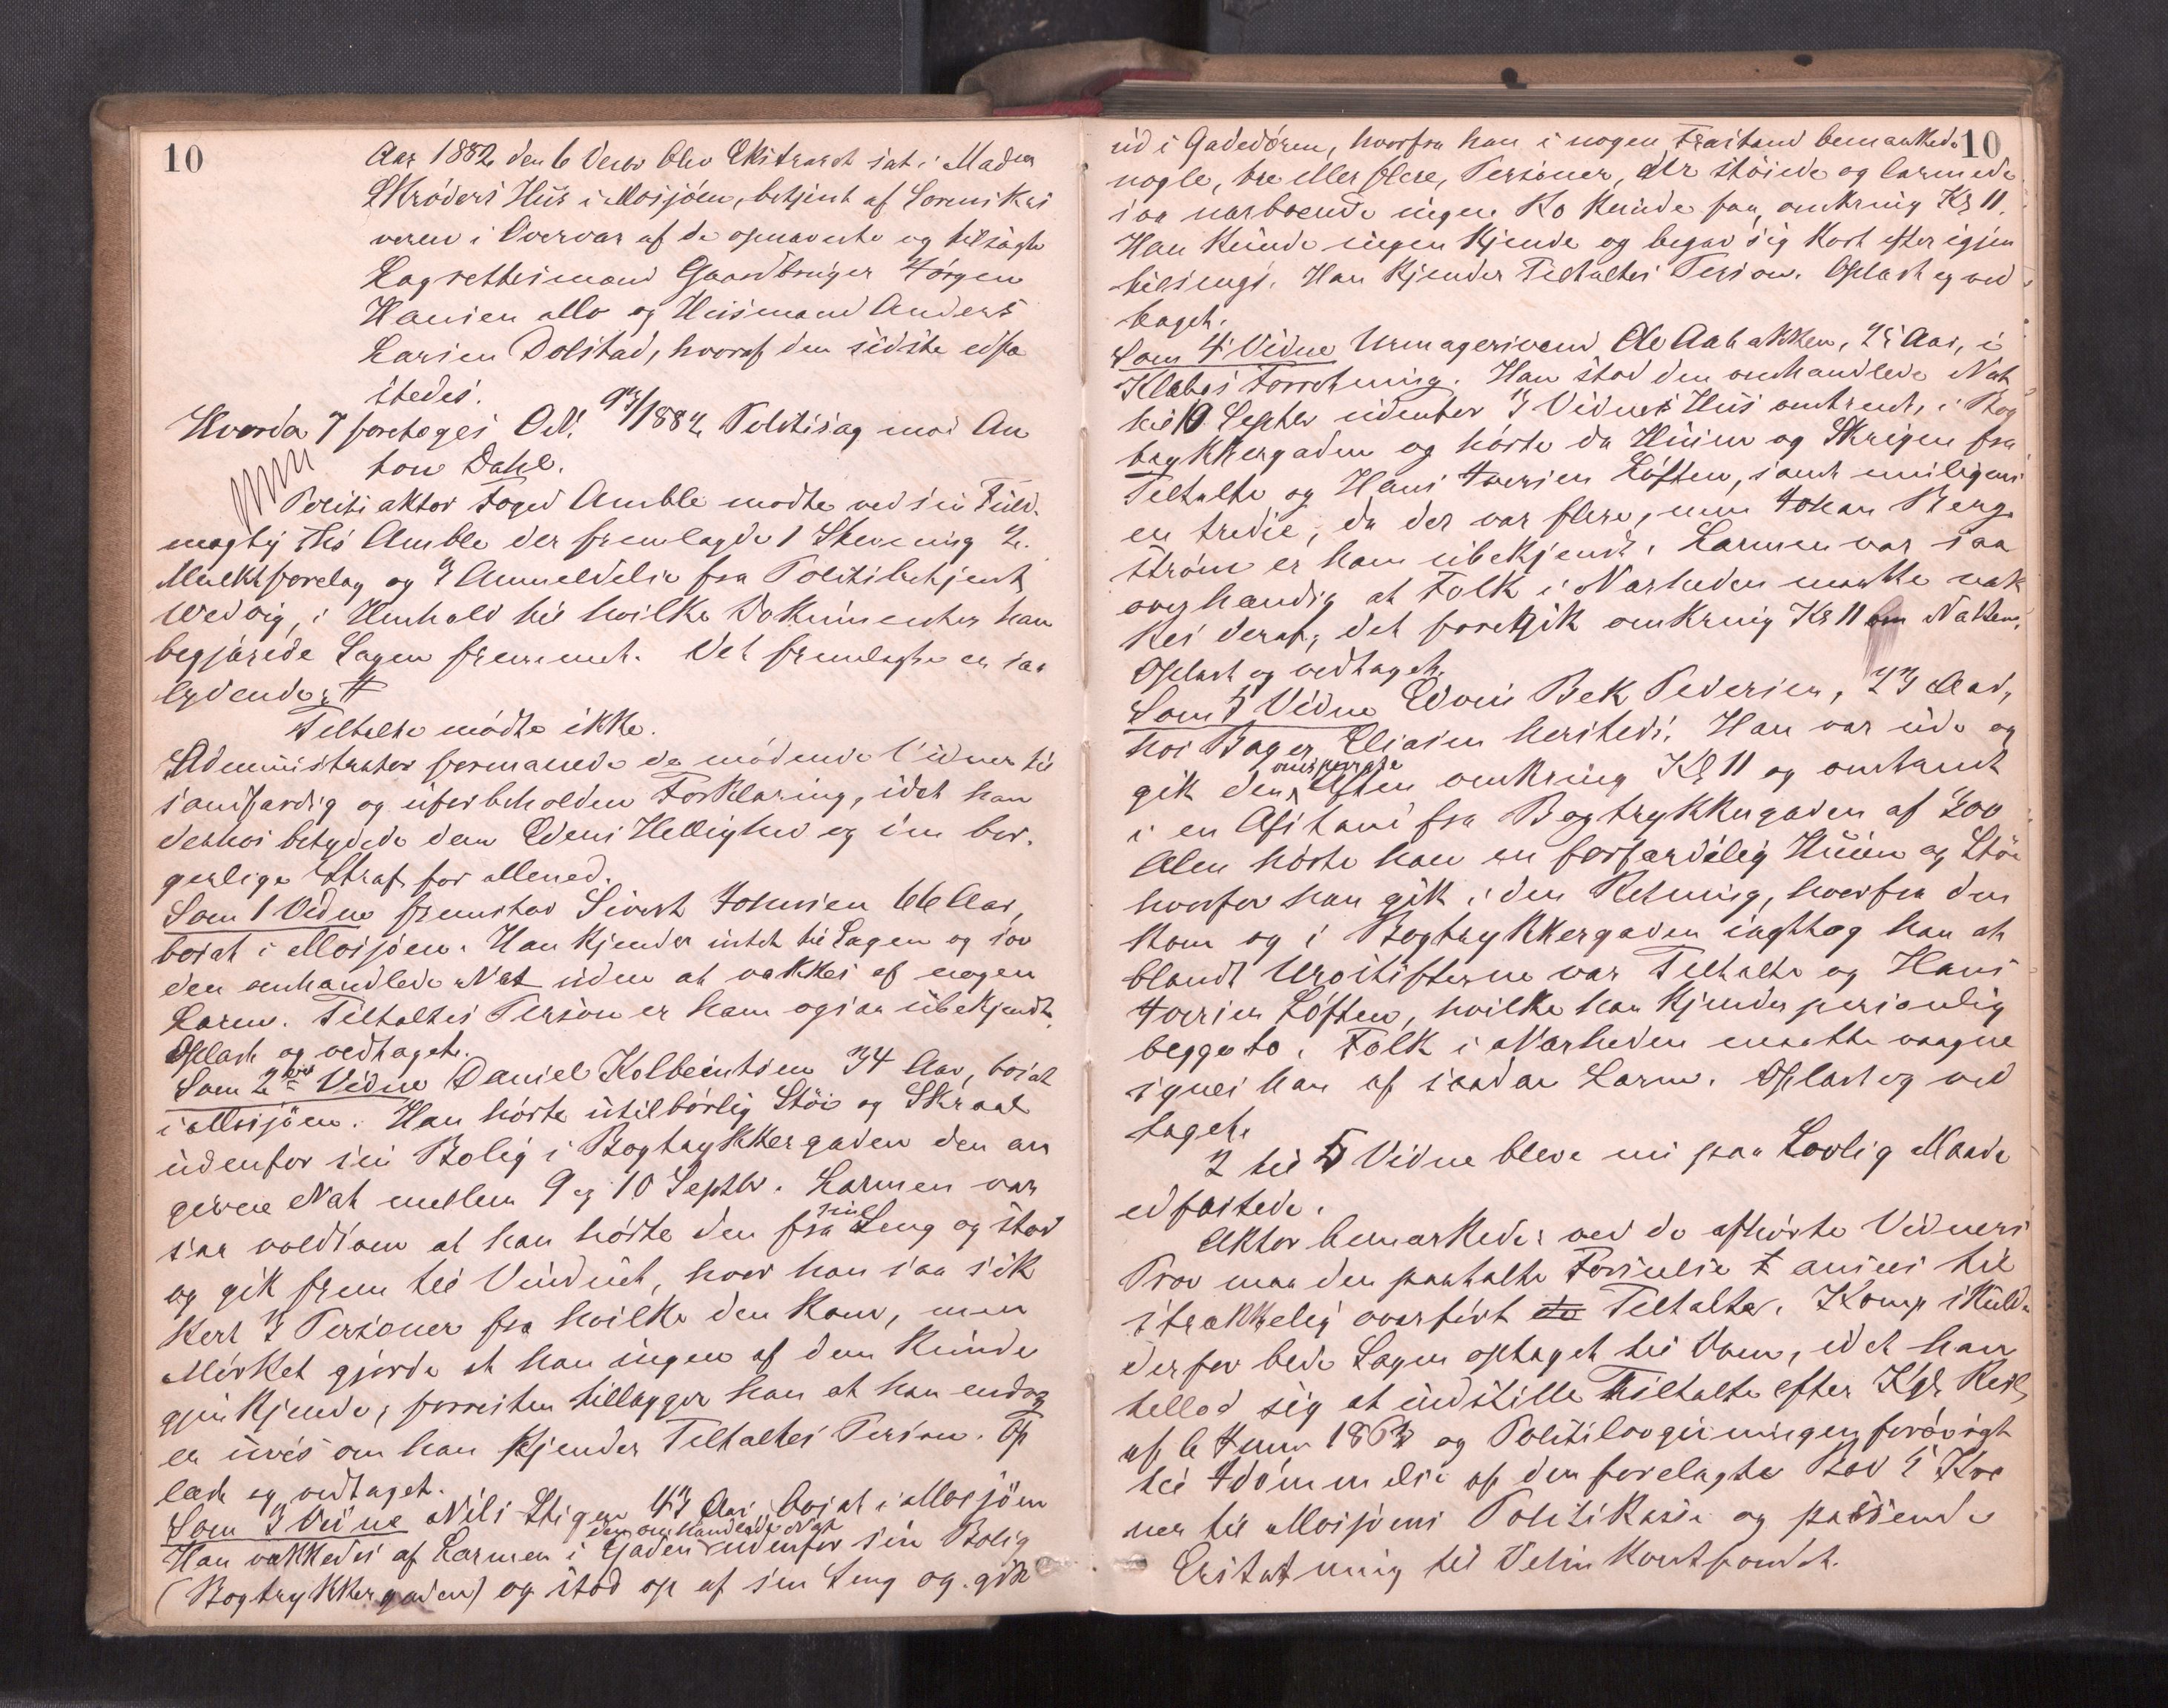 10
Aar 1882 den 6 blev Ekstraret sat i Madm
Skrøders Hus i Mosjøen, betjent af Sorenskri
veren i Overvær af de opnævnte og tilsagte
Lagrettesmænd Gaardbruger Jørgen
Hansen og Husmand Anders
Larsen Dolstad, hvoraf den sidste edfæ
stedes.
Hvorda foretoges 93/1882 Politisag mod An
ton Dahl.
Politiaktor Foged Amble mødte ved sin Fuld-
mægtig Ths Amble der fremlagde 1 Stevning 2.
Mulktforelæg og 3 Anmeldelse fra Politibetjent
Wedvig, i Henhold til hvilke Dokumenter han
begjærede Sagen fremmet. Det fremlagte er saa
lydende: #
Tiltalte mødte ikke.
Administrator formanede de mødende Vidner til
sandfærdig og uforbeholden Forklaring, idet han
derhos betydede dem Edens Hellighed og dens bor-
gerlige Straf for Mened.
Som 1 Vidne fremstod Sivert Johnsen 66 Aar,
bosat i Mosjøen. Han kjender intet til Sagen og sov
den omhandlede Nat uden at vækkes af nogen
Larm. Tiltaltes Person er ham ogsaa ubekjendt.
Oplæst og vedtaget.
Som 2det Vidne Daniel Kolbeintsen 34 Aar, bosat
i Mosjøen. Han hørte utilbørlig Støi og Skraal
udenfor sin Bolig i Bogtrykkergaden den an
givne Nat mellem 9 og 10 Septbr. Larmen var
saa voldsom at han hørte den fra sin Seng og stod
og gik frem til Vinduet, hvor han saa sik
kert 3 Personer fra hvilke den kom, men
Mørket gjorde at han ingen af dem kunde
gjenkjende; forresten tillægger han at han endog
er uvis om han kjender Tiltaltes Person. Op
læst og vedtaget.
Som 3 Vidne Nils Stigen 43 Aar bosat i Mosjøen
Han vækkedes af Larmen i Gaden den omhandlede Nat udenfor sin Bolig
(Bogtrykkergaden) og stod op af sin Seng og gik
10
ud i Gadedøren, hvorfra han i nogen Frastand bemærkede
nogle, tre eller flere, Personer, der støiede og larmede
saa nærboende ingen Ro kunde faa, omkring Kl 11.
Han kunde ingen kjende og begav sig kort efter igjen
tilsengs. Han kjender Tiltaltes Person. Oplæst og ved
taget.
Som 4 Vidne Urmagersvend Ole Aabakken, Aar, i
Klæboes Forretning. Han stod den omhandlede Nat
til 10 Septbr udenfor 3 Vidnes Hus omtrent, i Bog
trykkergaden og hørte da Huien og Skrigen fra
Tiltalte og Hans Iversen Løften, samt muligens
en tredie, da der var flere, men Johan Berg-
strøm er ham ubekjendt. Larmen var saa
overhændig at Folk i Nærheden maatte væk
kes deraf; det foregik omkring Kl 11 om Natten.
Oplæst og vedtaget.
Som 5 Vidne Edvin Bek Pedersen, 23 Aar,
hos Bager Eliasen hersteds. Han var ude og
gik den omspurgte Aften omkring Kl 11 og omtrent
i en Afstand fra Bogtrykkergaden af 300
Alen hørte han en forfærdelig Huien og Støi
hvorfor han gik i den Retning, hvorfra den
kom og i Bogtrykkergaden iagttog han at
blandt Urostifterne var Tiltalte og Hans
Iversen Løften, hvilke han kjender personlig
begge to. Folk i Nærheden maatte vaagne
synes han af saadan Larm. Oplæst og ved
taget.
2 til 5 Vidne bleve nu paa Lovlig Maade
edfæstede.
Aktor bemærkede: ved de afhørte Vidners
Prov maa den paatalte Forseelse ansees til
strækkelig overført Tiltalte. Komp skulde
derfor bede Sagen optaget til Dom, idet han
tillod sig at indstille Tiltalte efter Kgl Resl
af 6 Juni 1863 og Politilovgivningen forøvrigt
til Idømmelse af den forelagte Bod 5 Kro
ner til Mosjøens Politikasse og passende
Erstatning til Delinkventfondet.